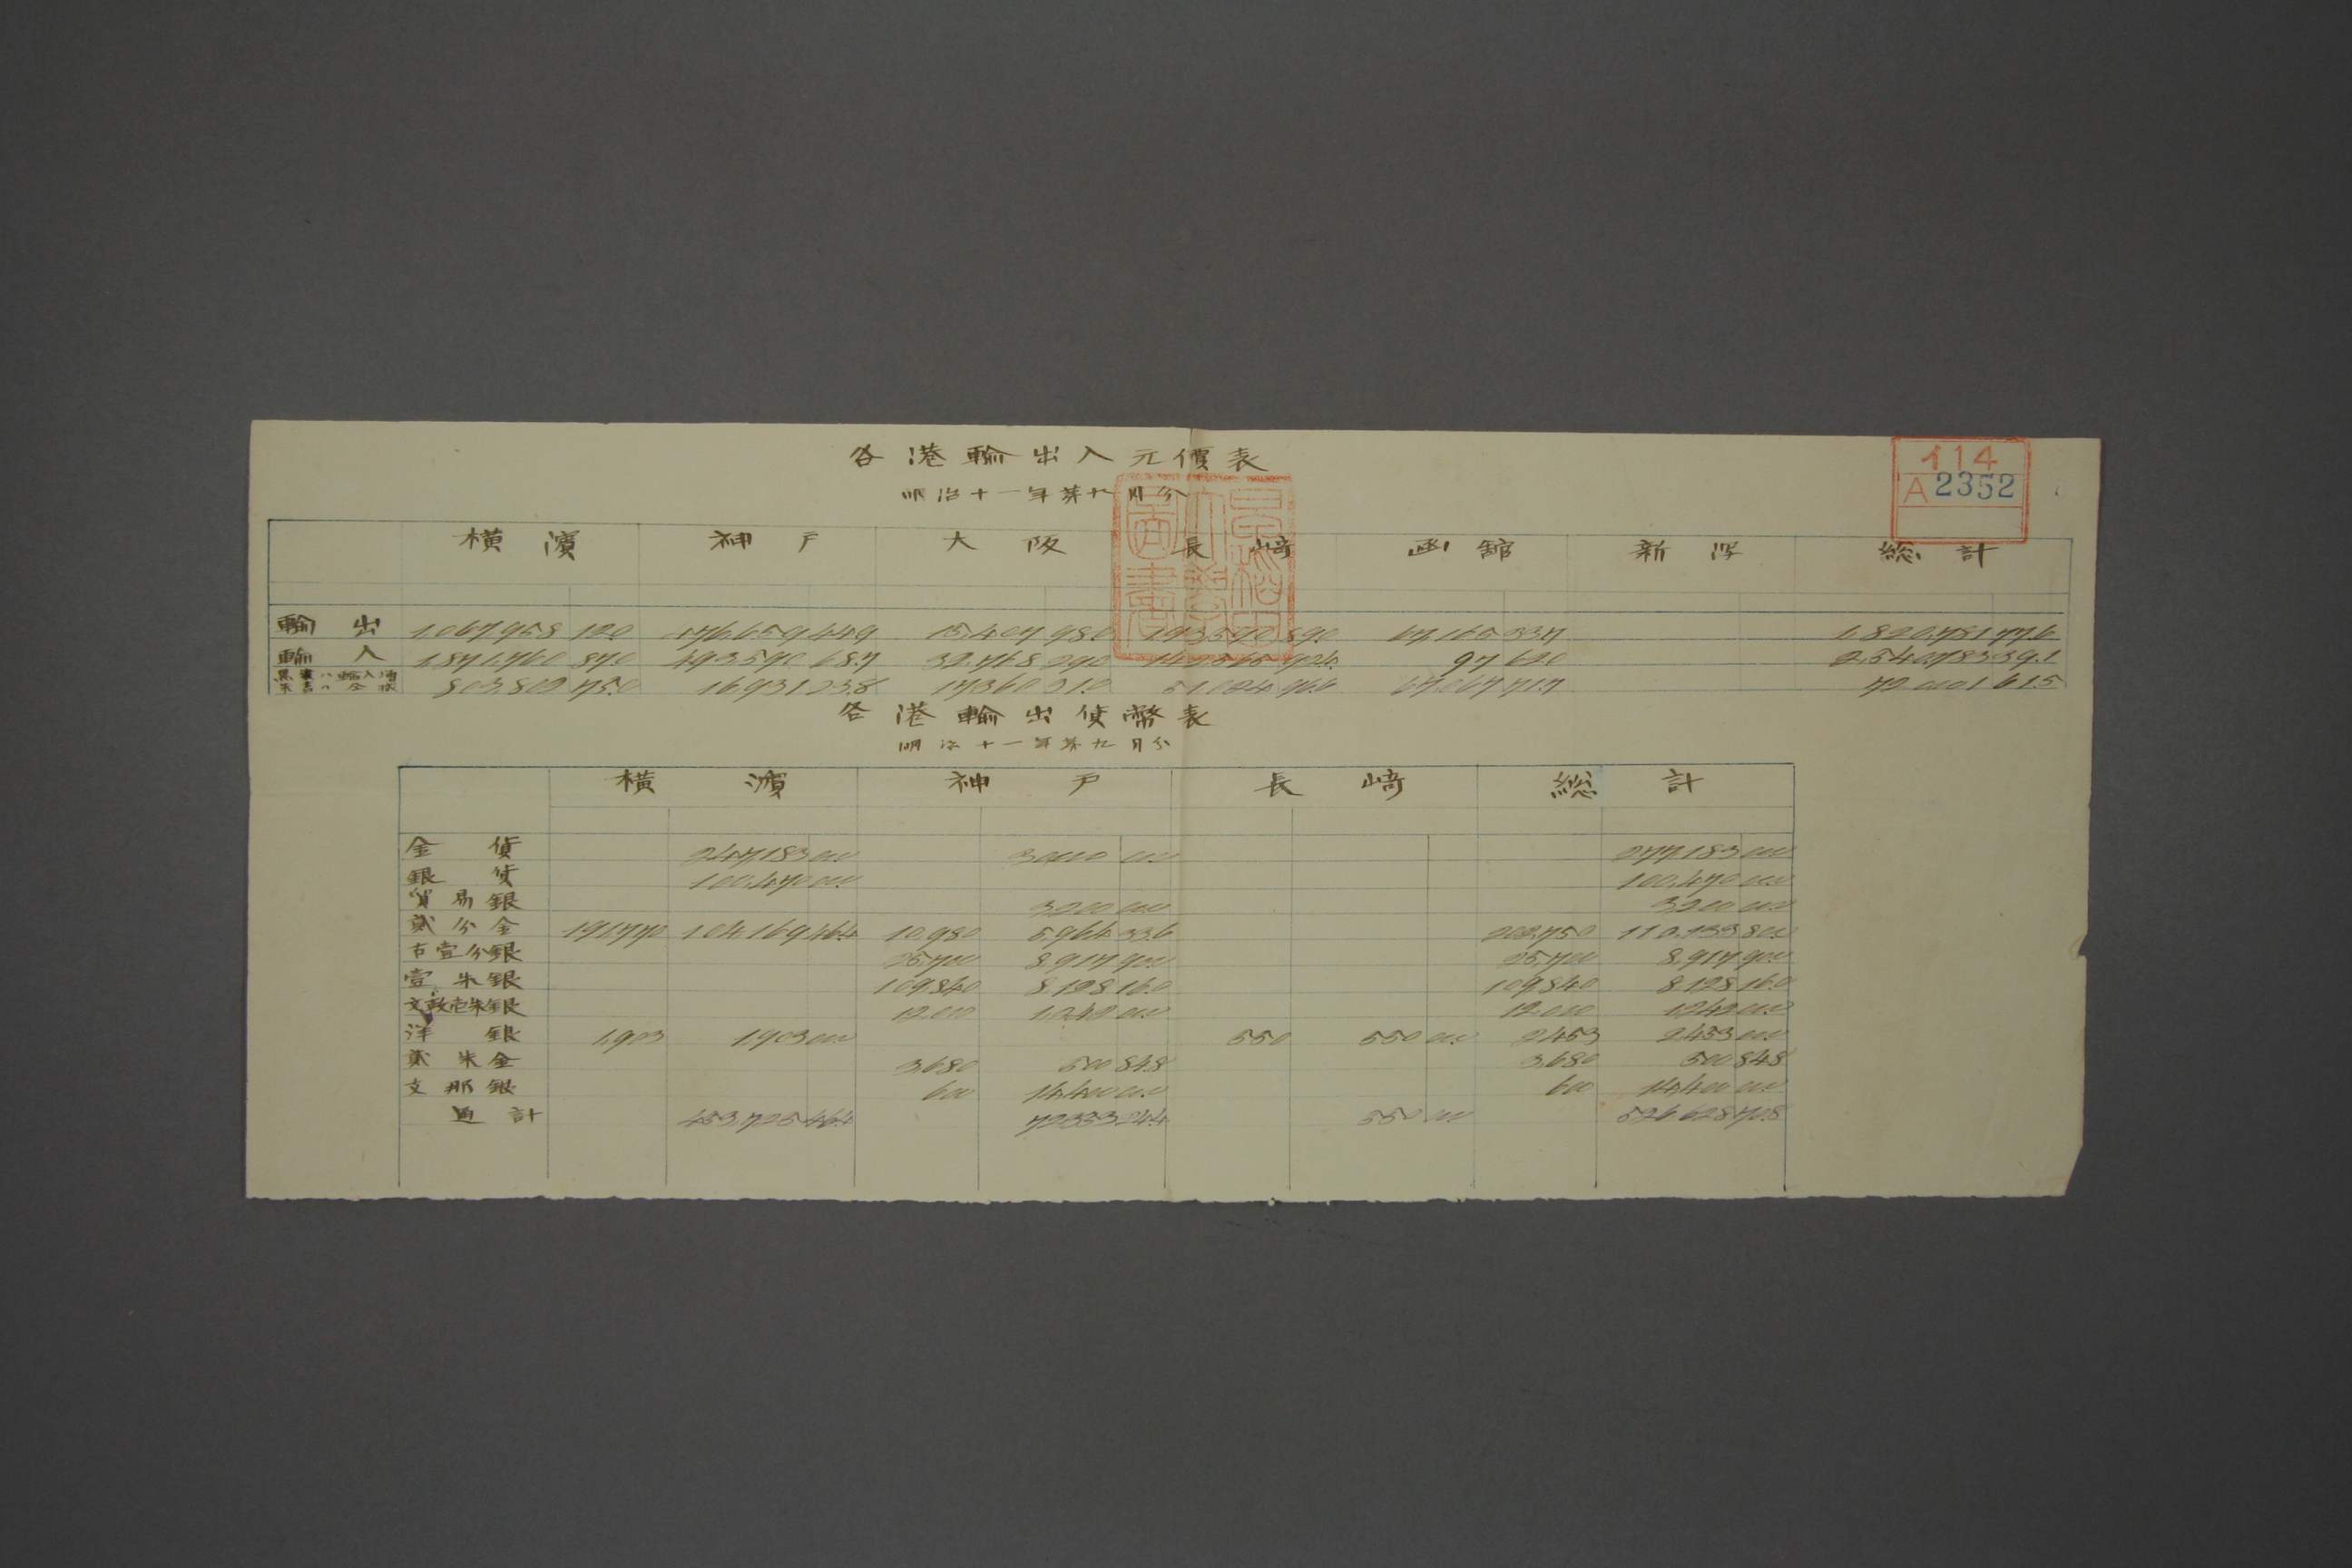 各港輸出入元價表
明治十一年第九月分
114
A 2352
早稲田大学図書
横濱 神戸 大阪 長崎 函館 新潟 総計
輸出 1,067,958 12.0 476,659 44.9 15,407 98.0 193,590 89.0 67,165 33.7 1,820,781 77.6
輸入 1,871,760 87.0 493,590 68.7 32,768 29.0 97 62.0 2,540,783 39.1
803,802 75.0 16,931 23.8 17,360 31.0 67,067 71.7
各港輸出貨幣表
明治十一年第九月分
横濱 神戸 長崎 総計
金貨 247,183 00.0 30,000 00.0 277,183 00.0
銀貨 100,470 00.0 100,470 00.0
貿易銀 3,200 00.0 3,200 00.0
貳分金 191,770 104,169 46.4 10,980 5,964 33.6 202,750 110,133 80.0
古壹分銀 25,700 8,917 90.0 25,700 8,917 90.0
壹朱銀 109,840 8,128 16.0 109,840 8,128 16.0
文政壱朱銀 12,000 1,242 00.0 12,000 1,242 00.0
洋銀 1,903 1,903 00.0 550 550 00.0 2,453 2,453 00.0
貳朱金 3,680 500 84.8 3,680 500 84.8
支那銀 600 14,400 00.0 600 14,400 00.0
通計 453,725 46.4 72,353 24.4 550 00.0 526,628 70.8